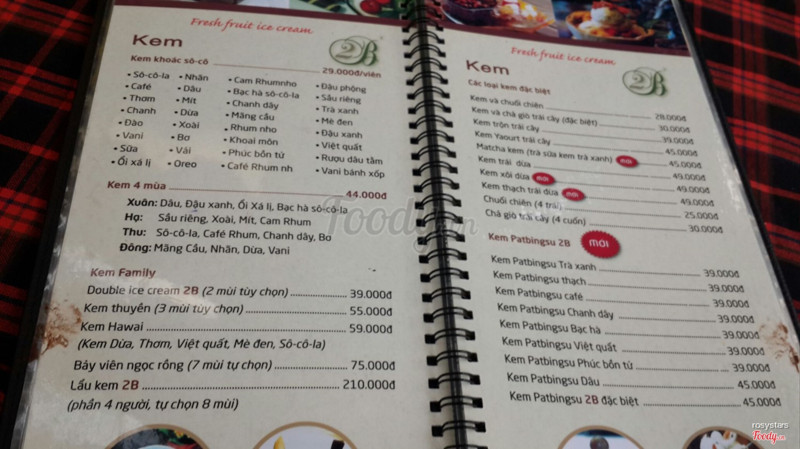 Fresh fruit ice cream
2B
Kem
Kem khoác sô-cô 29.000đ/viên
• Sô-cô-la • Nhãn • Cam Rhumnho • Đậu phộng
• Café • Dâu • Bạc hà sô-cô-la • Sầu riêng
• Thơm • Mít • Chanh dây • Trà xanh
• Chanh • Dừa • Mãng cầu • Mè đen
• Đào • Xoài • Rhum nho • Đậu xanh
• Vani • Bơ • Khoai môn • Việt quất
• Sữa • Vải • Phúc bồn tử • Rượu dâu tằm
• Ổi xá lị • Oreo • Café Rhum nh • Vani bánh xốp
Kem 4 mùa 44.000đ
Xuân: Dâu, Đậu xanh, Ổi Xá lị, Bạc hà sô-cô-la
Hạ: Sầu riêng, Xoài, Mít, Cam Rhum
Thu: Sô-cô-la, Café Rhum, Chanh dây, Bơ
Đông: Mãng Cầu, Nhãn, Dừa, Vani
Kem Family
Double ice cream 2B (2 mùi tùy chọn) 39.000đ
Kem thuyền (3 mùi tùy chọn) 55.000đ
Kem Hawai 59.000đ
(Kem Dừa, Thơm, Việt quất, Mè đen, Sô-cô-la)
Bảy viên ngọc rồng (7 mùi tự chọn) 75.000đ
Lẩu kem 2B 210.000đ
(phần 4 người, tự chọn 8 mùi)
Fresh fruit ice cream
2B
Kem
Các loại kem đặc biệt
Kem và chuối chiên 28.000đ
Kem và chả giò trái cây (đặc biệt) 30.000đ
Kem trộn trái cây 39.000đ
Kem Yaourt trái cây 45.000đ
Matcha kem (trà sữa kem trà xanh) mới 45.000đ
Kem trái dừa 49.000đ
Kem xôi dừa mới 49.000đ
Kem thạch trái dừa mới 49.000đ
Chuối chiên (4 trái) 25.000đ
Chả giò trái cây (4 cuốn) 30.000đ
Kem Patbingsu 2B mới
Kem Patbingsu Trà xanh 39.000đ
Kem Patbingsu thạch 39.000đ
Kem Patbingsu café 39.000đ
Kem Patbingsu Chanh dây 39.000đ
Kem Patbingsu Bạc hà 39.000đ
Kem Patbingsu Việt quất 39.000đ
Kem Patbingsu Phúc bồn tử 39.000đ
Kem Patbingsu Dâu 45.000đ
Kem Patbingsu 2B đặc biệt 45.000đ
Foody.vn
rosystars
Foody.vn